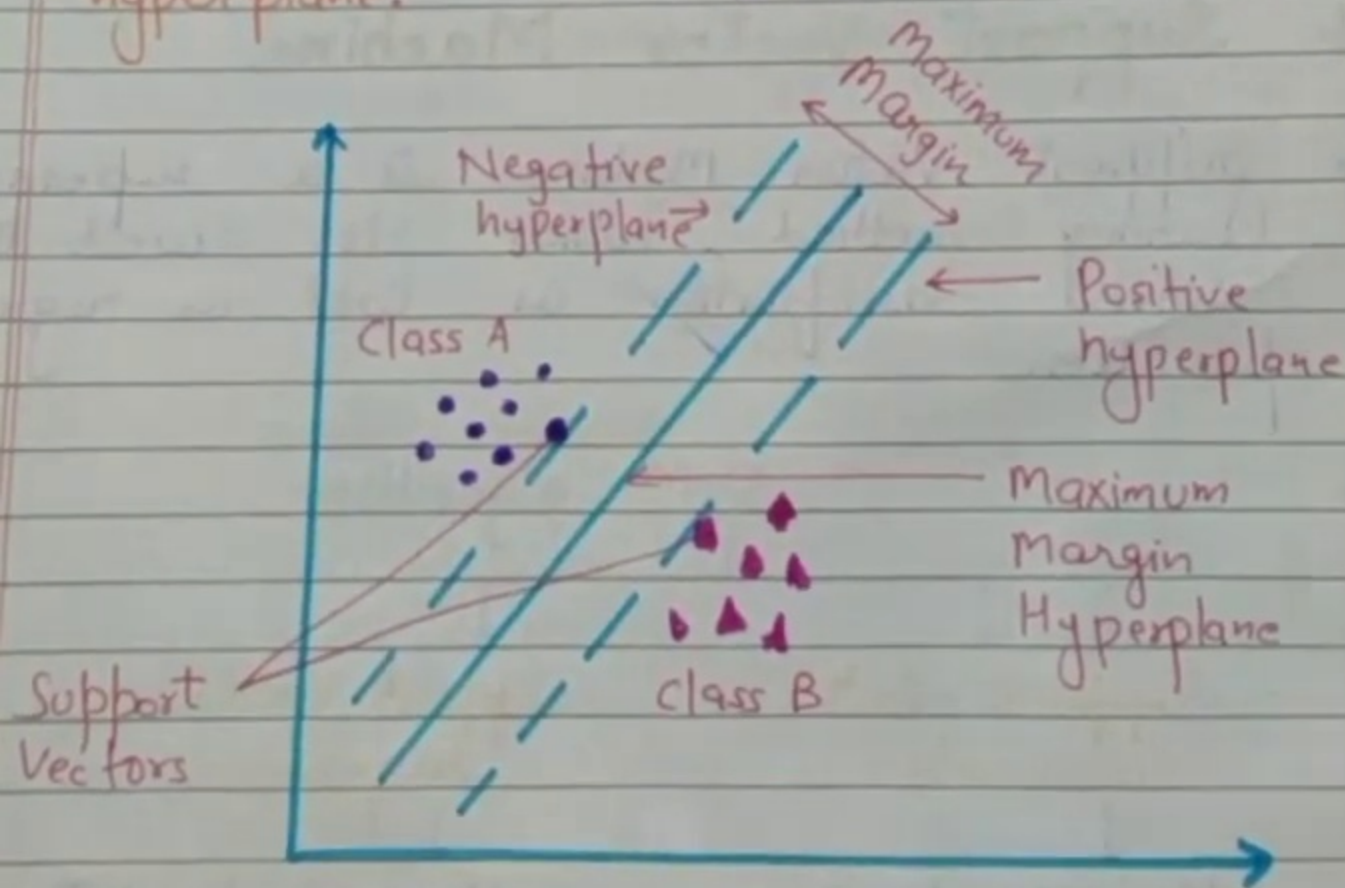 hyperplane.
Maximum
Margin
Negative
hyperplane
Positive
hyperplane
Class A
Maximum
Margin
Hyperplane
Support
Vectors
Class B